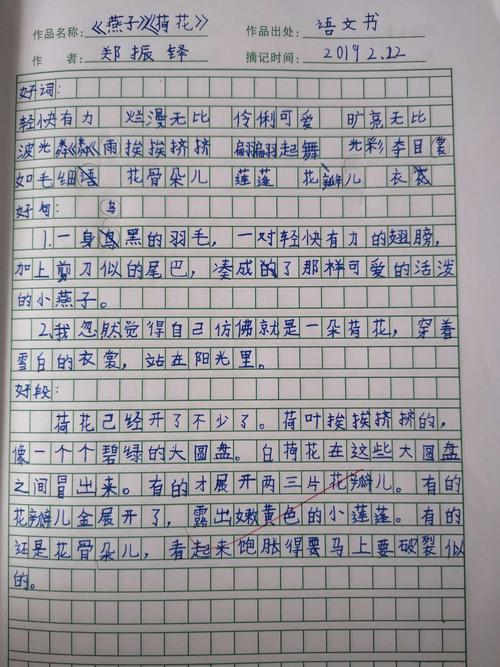 作品名称:《燕子》《荷花》 作品出处:语文书
作者:郑振铎 摘记时间:2019 2.22
好词:
轻快有力 烂漫无比 伶俐可爱 旷亮无比
波光粼粼 雨挨挨挤挤 翩翩起舞 光彩夺目
如毛细语 花骨朵儿 莲蓬 花瓣儿 衣裳
好句: 乌
1.一身乌黑的羽毛,一对轻快有力的翅膀,
加上剪刀似的尾巴,凑成的了那样可爱的活泼
的小燕子。
2.我忽然觉得自己仿佛就是一朵荷花,穿着
雪白的衣裳,站在阳光里。
好段:
荷花已经开了不少了。荷叶挨挨挤挤的,
像一个个碧绿的大圆盘。白荷花在这些大圆盘
之间冒出来。有的才展开两三片花瓣儿。有的
花瓣儿全展开了,露出嫩黄色的小莲蓬。有的
还是花骨朵儿,看起来饱胀得要马上要破裂似
的。